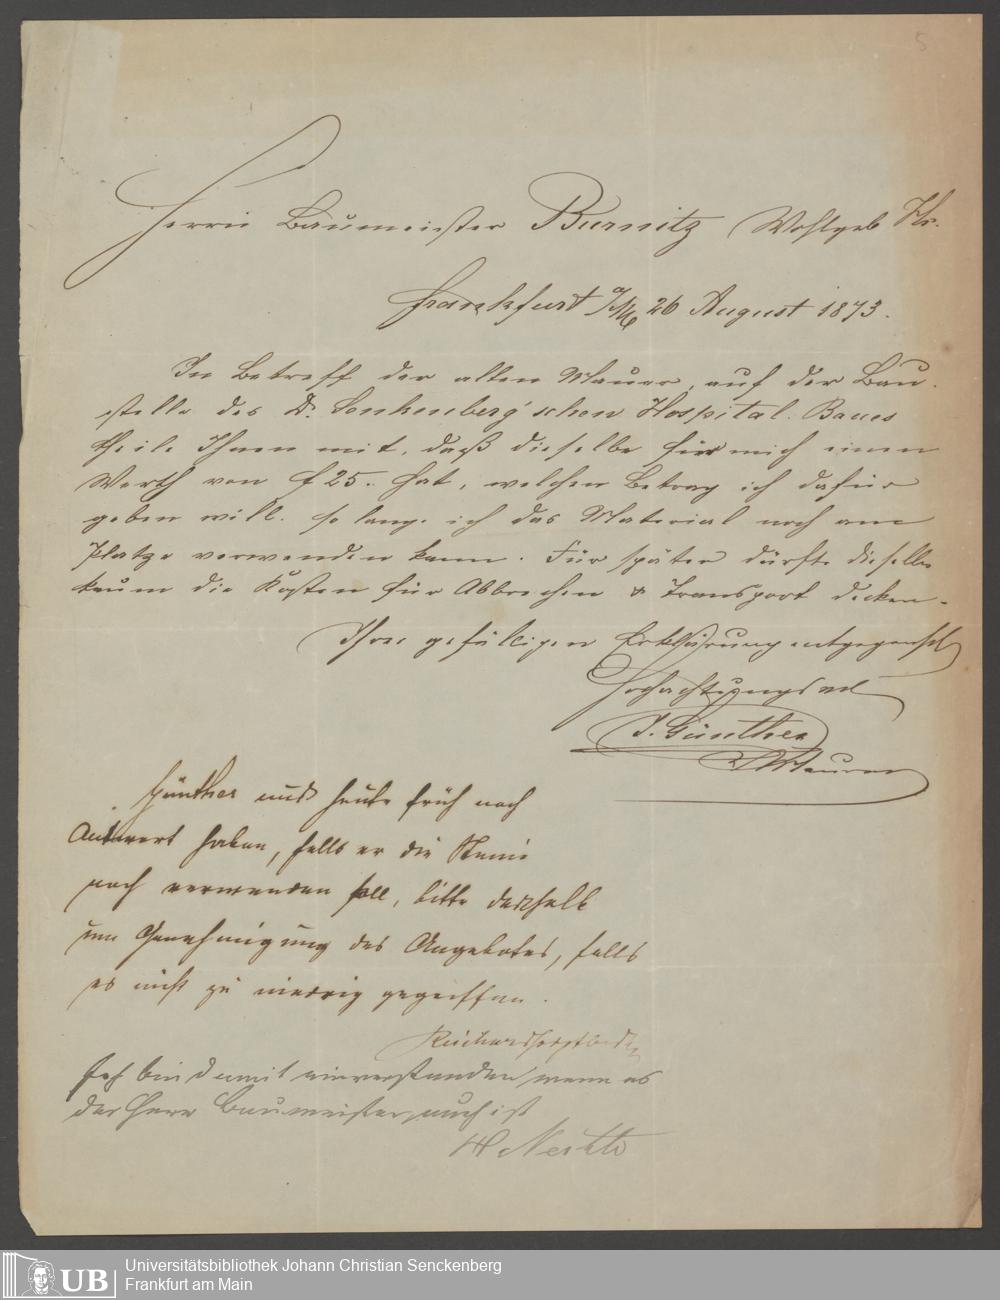 5
Herrn Baumeister Burnitz Wohlgeb Hr.
Frankfurt a/M 26 August 1873.
In Betreff der alten Mauer, auf der Bau-
stelle des Dr. Senkenberg'schen Hospital-Baues
theile Ihnen mit, daß dieselbe für mich einen
Werth von f 25. hat, welchen Betrag ich dafür
geben will. so lange ich das Material noch am
Platze verwenden kann. Für später dürfte dieselbe
kaum die Kosten für Abbrechen & Transport decken.
Ihrer gefälligen Erklärung entgegenseh
Hochachtungsvoll
J. Günther
Maurer
Günther muß heute früh noch
Antwort haben, falls er die Steine
noch verwenden soll, bitte deshalb
um Genehmigung des Angebotes, falls
es nicht zu niedrig gegriffen.
Ich bin damit einverstanden wenn es
der Herr Baumeister auch ist
UB
Universitätsbibliothek Johann Christian Senckenberg
Frankfurt am Main